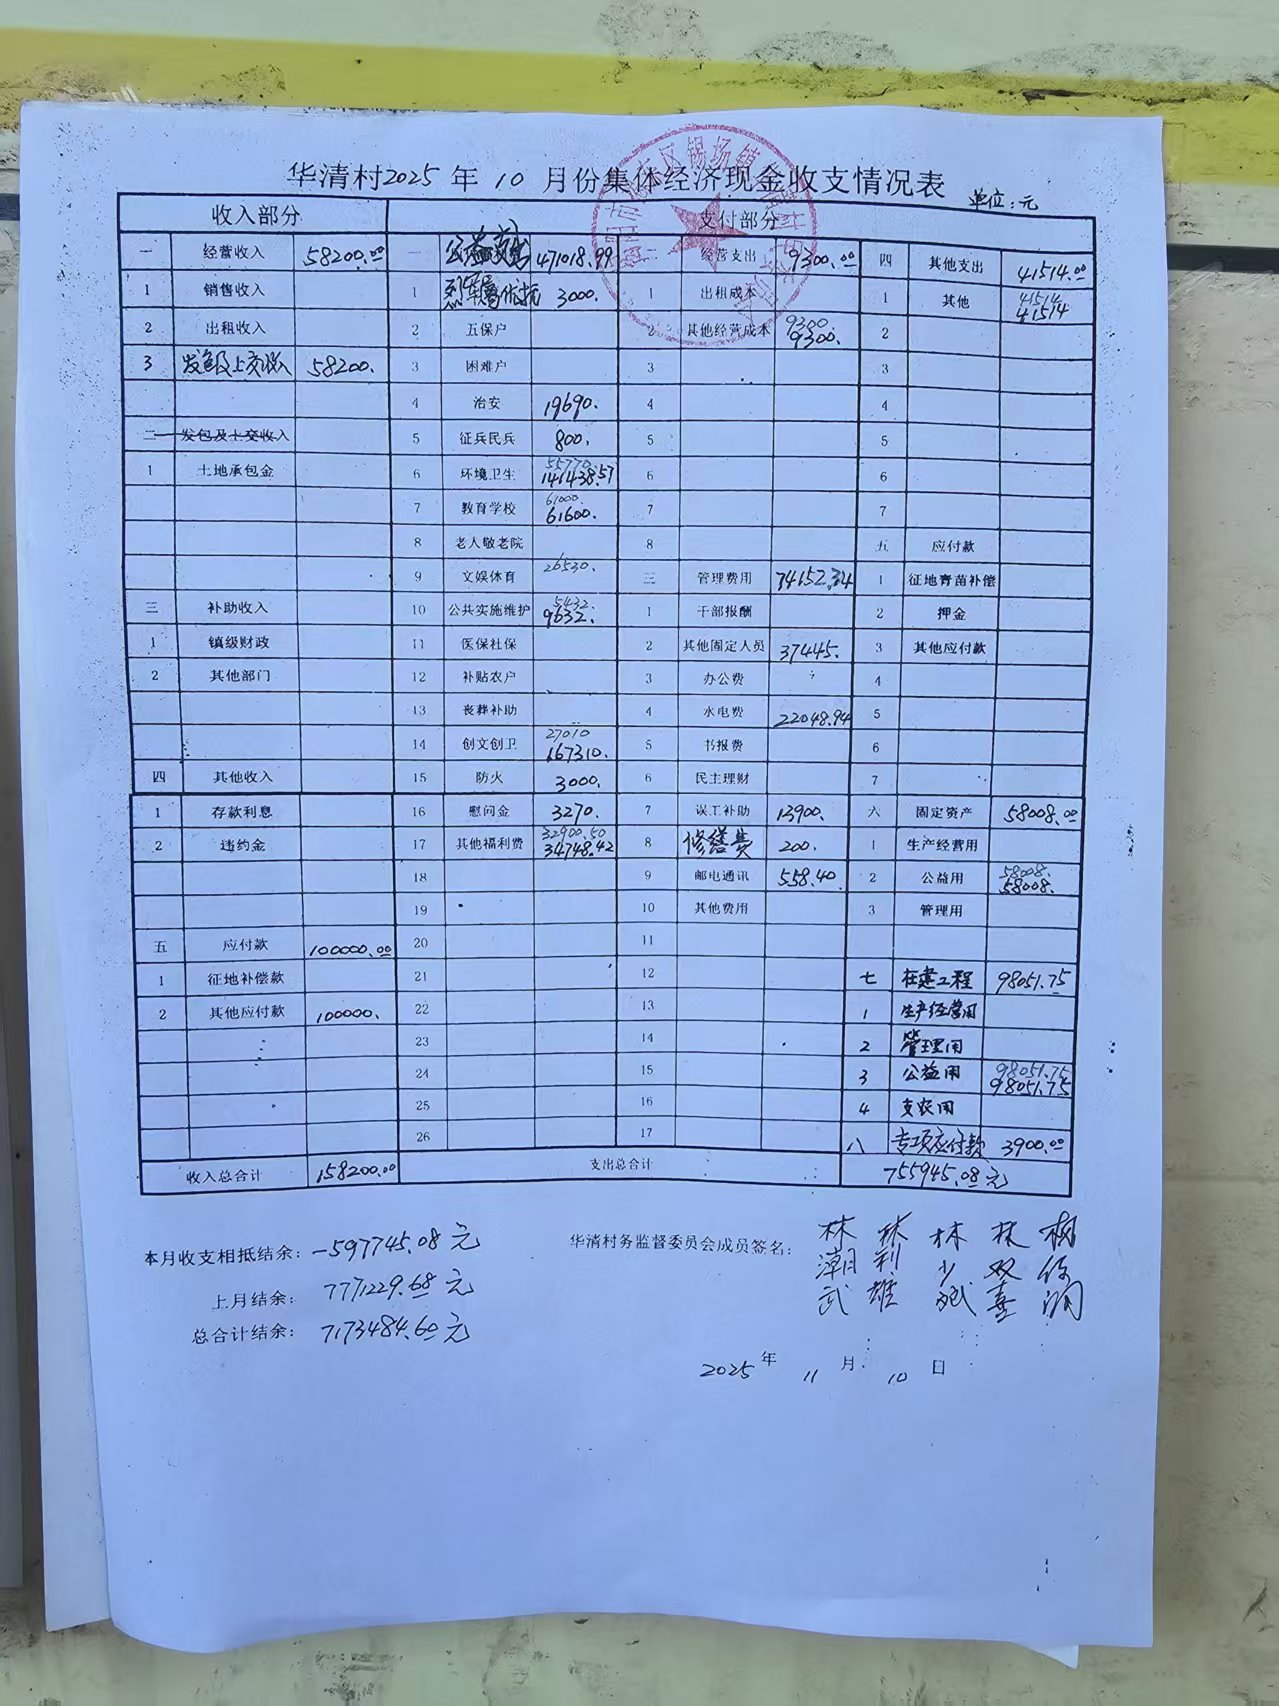 华清村2025年10月份集体经济现金收支情况表
单位:元
收入部分 支付部分
一 经营收入 58200.00 一 公益支出 471018.99 二 经营支出 9300.00 四 其他支出 41514.00
1 销售收入 1 3000. 1 出租成本 1 其他 41514 41514
2 出租收入 2 五保户 2 其他经营成本 9300 9300. 2
3 发包及上交收入 58200. 3 困难户 3 3
4 治安 19690. 4 4
二 发包及上交收入 5 征兵民兵 800. 5 5
1 土地承包金 6 环境卫生 55770. 141438.57 6 6
7 教育学校 61000. 61600. 7 7
8 老人敬老院 8 五 应付款
9 文娱体育 26530. 三 管理费用 74152.34 1 征地青苗补偿
三 补助收入 10 公共实施维护 5432. 9632. 1 干部报酬 2 押金
1 镇级财政 11 医保社保 2 其他固定人员 37445. 3 其他应付款
2 其他部门 12 补贴农户 3 办公费 4
13 丧葬补助 4 水电费 22048.94 5
14 创文创卫 27010 167310. 5 书报费 6
四 其他收入 15 防火 3000. 6 民主理财 7
1 存款利息 16 慰问金 3270. 7 误工补助 13900. 六 固定资产 58008.00
2 违约金 17 其他福利费 32900.50 34748.42 8 修缮费 200. 1 生产经营用
18 9 邮电通讯 558.40 2 公益用 58008. 58008.
19 10 其他费用 3 管理用
五 应付款 100000.00 20 11
1 征地补偿款 21 12 七 在建工程 98051.75
2 其他应付款 100000. 22 13 1 生产经营用
23 14 2 管理用
24 15 3 公益用 98051.75 98051.75
25 16 4 支农用
26 17 八 专项应付款 3900.00
收入总合计 158200.00 支出总合计 755945.08元
本月收支相抵结余: -597745.08元
上月结余: 7771229.68元
总合计结余: 7173484.60元
华清村务监督委员会成员签名: 林潮武 林利雄 林少斌 林双喜
2025年11月10日